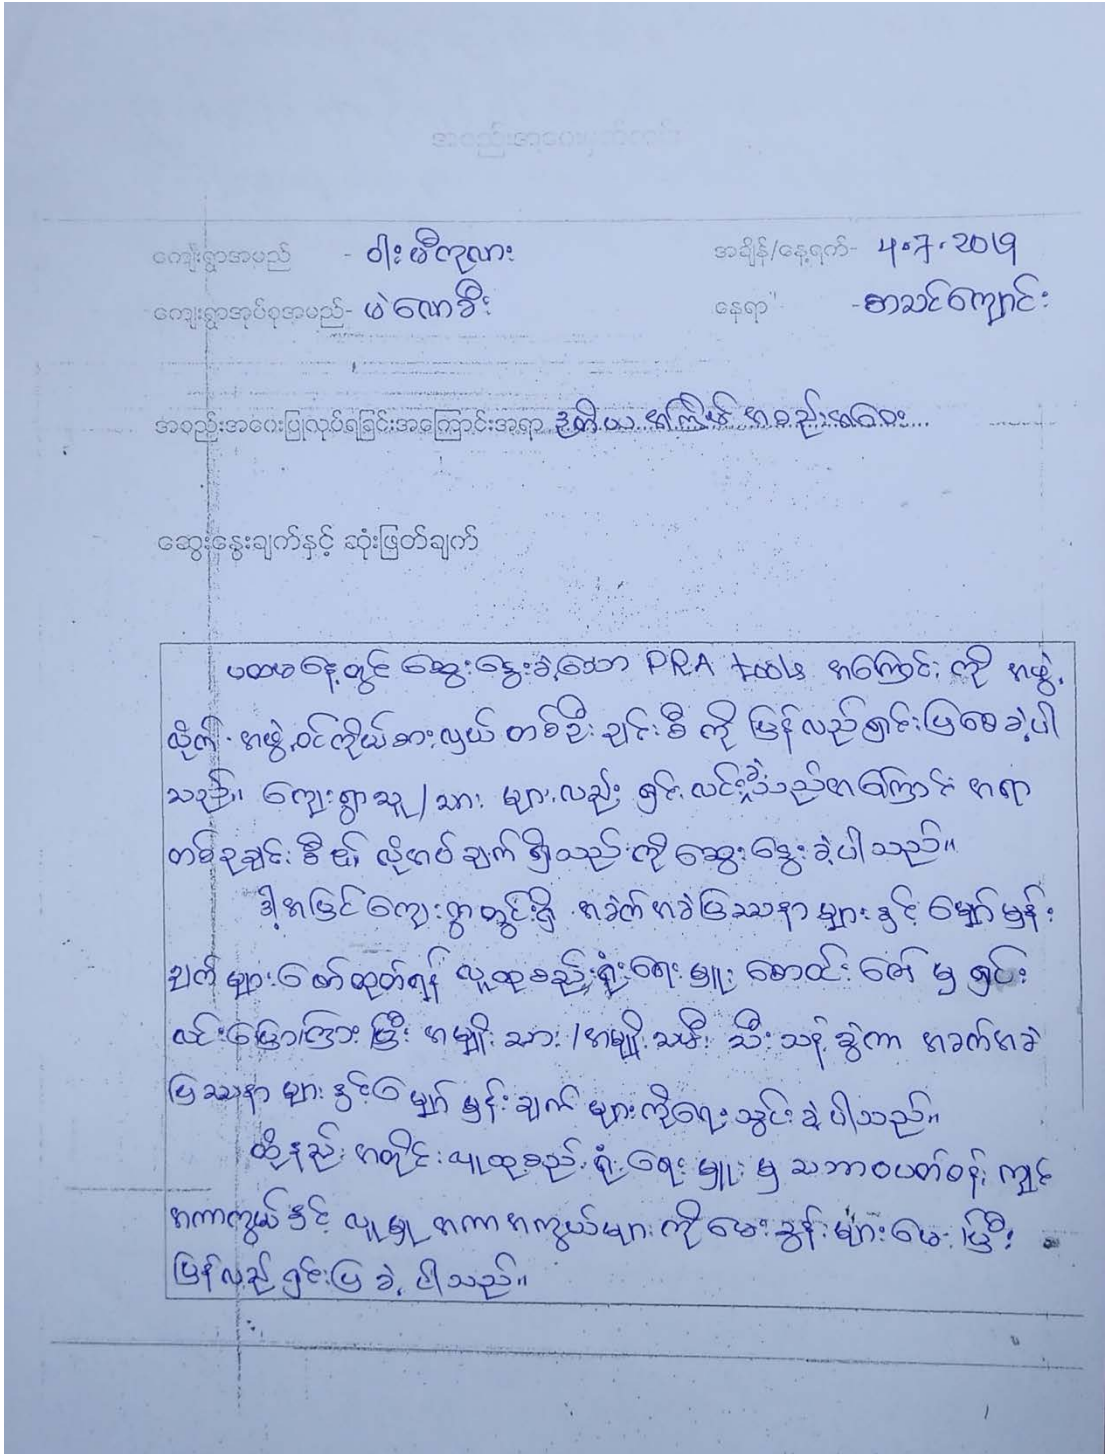 အစည်းအဝေးမှတ်တမ်း
ကျေးရွာအမည် - ဝါးဖီကုလား အချိန်/နေ့ရက်- 4.7.2019
ကျေးရွာအုပ်စုအမည်- ဖဲခေါခီး နေရာ - စာသင်ကျောင်း
အစည်းအဝေးပြုလုပ်ရခြင်းအကြောင်းအရာ ဒုတိယ အကြိမ် အစည်းအဝေး
ဆွေးနွေးချက်နှင့် ဆုံးဖြတ်ချက်
ပထမနေ့တွင် ဆွေးနွေးခဲ့သော PRA tools အကြောင်း ကို အဖွဲ့
လိုက် အဖွဲ့ဝင်ကိုယ်စားလှယ် တစ်ဦးချင်းစီ ကို ပြန်လည်ရှင်းပြစေခဲ့ပါ
သည်။ ကျေးရွာသူ/သား များလည်း ရှင်းလင်းခဲ့သည့်အကြောင်း အရာ
တစ်ခုချင်းစီ၏ လိုအပ်ချက်ရှိသည်ကို ဆွေးနွေးခဲ့ပါသည်။
ဒါ့အပြင်ကျေးရွာတွင်းရှိ အခက်အခဲပြဿနာများနှင့် မျှော်မှန်း
ချက်များဖော်ထုတ်ရန် လူထုစည်းရုံးရေးမှူး စောဝင်းဇော် မှ ရှင်း
လင်းပြောကြားပြီး အမျိုးသား/အမျိုးသမီး သီးသန့်ခွဲကာ အခက်အခဲ
ပြဿနာများနှင့်မျှော်မှန်းချက်များကိုရေးသွင်းခဲ့ပါသည်။
ထို့နည်းအတိုင်း လူထုစည်းရုံးရေးမှူးမှ သဘာဝပတ်ဝန်းကျင်
အကာကွယ်နှင့် လူမှုအကာအကွယ်များကိုမေးခွန်းများမေးပြီး
ပြန်လည်ရှင်းပြခဲ့ပါသည်။